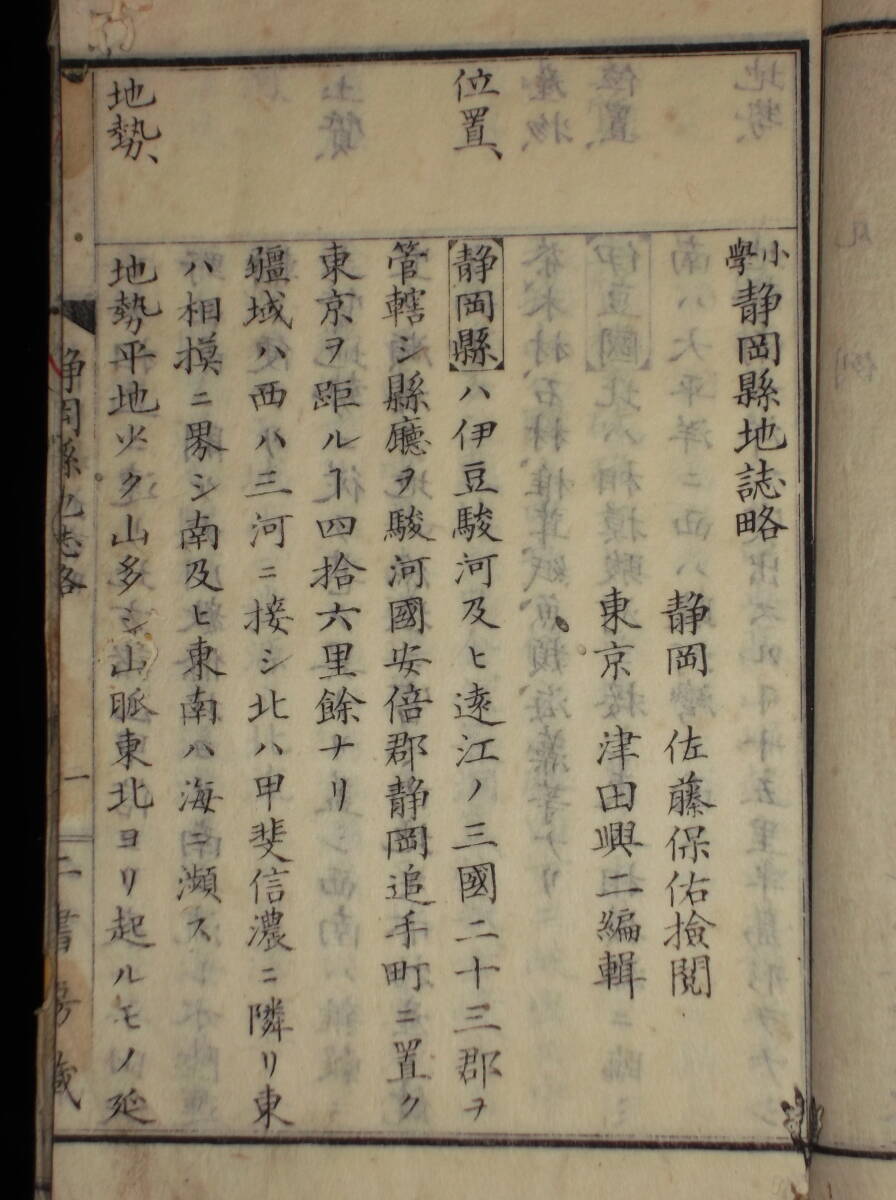 小學 静岡縣地誌略
静岡 佐藤保佑撿閲
東京 津田興二編輯
位置、
静岡縣ハ伊豆駿河及ヒ遠江ノ三國二十三郡ヲ
管轄シ縣廳ヲ駿河國安倍郡静岡追手町ニ置ク
東京ヲ距ルヿ四拾六里餘ナリ
疆域ハ西ハ三河ニ接シ北ハ甲斐信濃ニ隣リ東
ハ相摸ニ界シ南及ヒ東南ハ海ニ瀕ス
地勢、
地勢平地少ク山多シ山脈東北ヨリ起ルモノ延
静岡縣地誌略
一